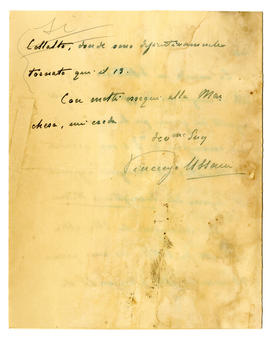 Collalto, donde sono definitivamente
tornato qui il 13.
Con molti ossequi alla Mar
chesa, mi creda
dev mo Suo
Vincenzo Ussani